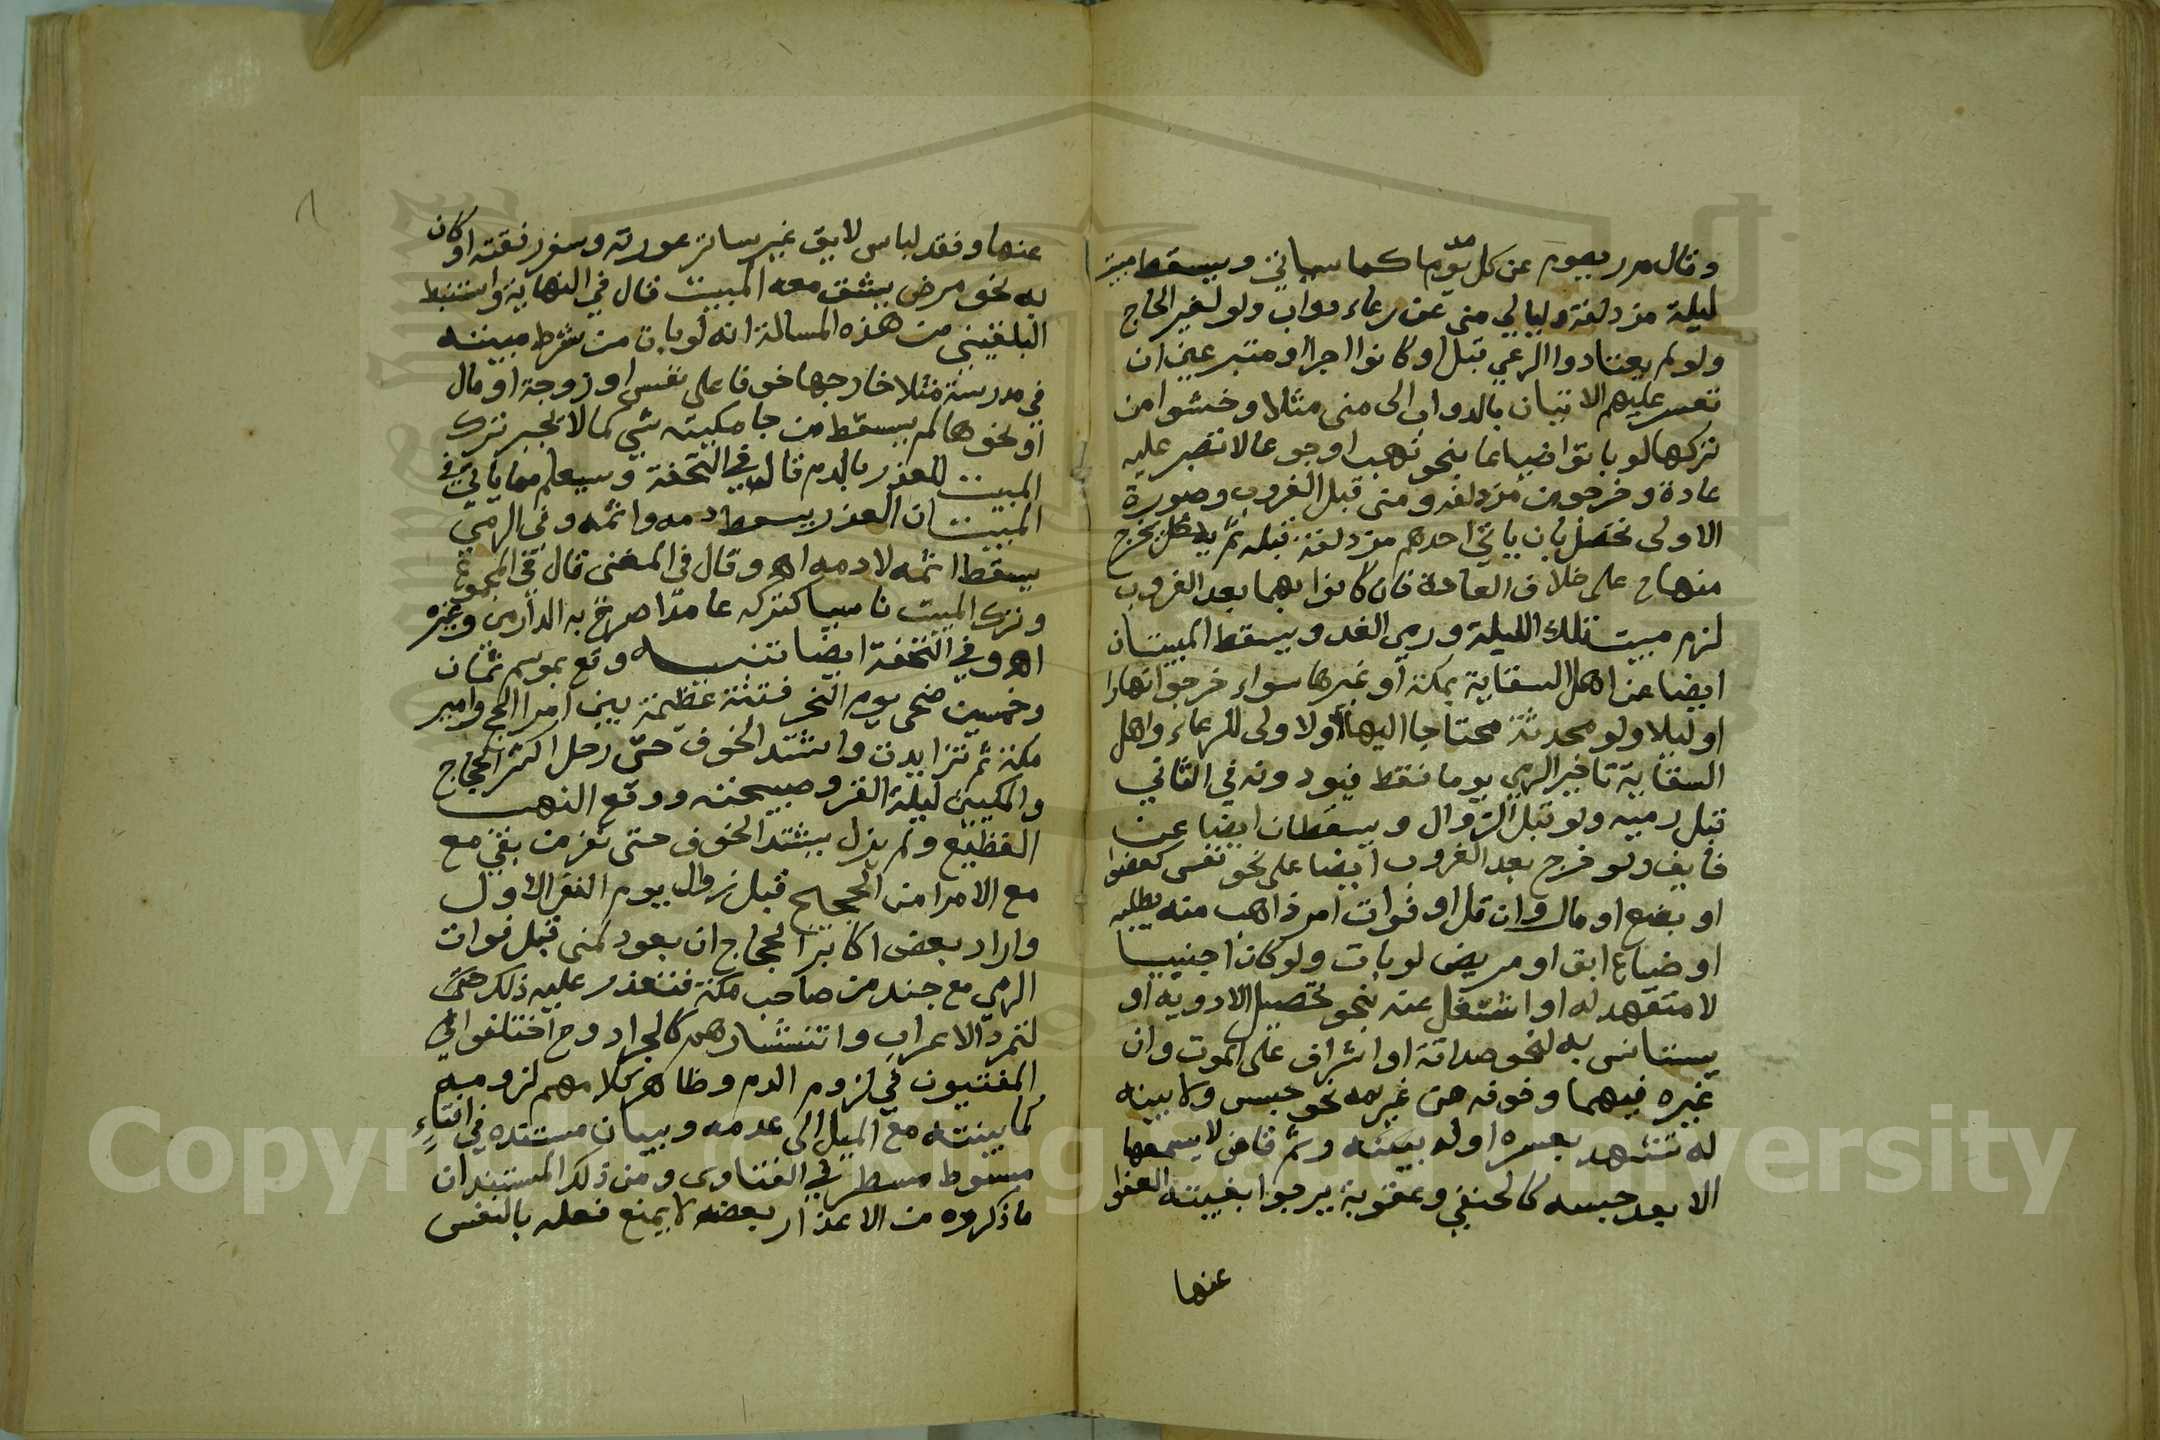 وقال م ر يصوم عن كل مد يوما كما سياتي ويسقط مبيت
ليلة مزدلفة وليالي منى عن رعاء دواب ولو لغير الحاج
ولو لم يعتادوا الرعي قبل او كانوا اجراا ومتبرعين ان
تعسر عليهم الاتيان بالدواب الى منى مثلا وخشوا من
تركها لو باتوا ضياعا بنحو نهب او جوعا لا تصبر عليه
عادة وخرجوا من مزدلفه ومنى قبل الغروب وصورة
الاولى تحصل بان ياتي احدهم مزدلفة قبله ثم يخرج
منها ح على خلاف العادة فان كانوا بهما بعد الغروب
لزم مبيت تلك الليلة ورمي الغد ويسقط المبيتان
ايضا عن اهل السقاية بمكة او غيرها سواء خرجوا نهارا
او ليلا ولو محدثة محتاجا اليها ولا ولى للرعاء واهل
السقاية تاخير الرمي يوما فقط فيودونه في الثاني
قبل رميه ولو قبل الزوال ويسقطان ايضا عن
خايف ولو خرج بعد الغروب ايضا على نحو نفس كعضو
او بضع او مال وان قل او فوات امر ذاهب منه يطلبه
او ضياع ابق او مريض لو بات ولو كان اجنبيا
لا متعهد له او اشتغل عنه بنحو تحصيل الادويه او
يستانس به لنحو صداقة او اشراف على الموت وان
غيره فيهما وخوفه من غريمه نحو حبس ولا بينه
له تشهد بعسره او له بينه وثم قاض لا يسمعها
الا بعد حبسه كالحنفي وعقوبة يرجوا بغيبته العفو
عنها
عنها وفقد لباس لايق غير ساتر عورته وسفر رفقته او كان
به نحو مرض يشق معه المبيت قال في النهاية واستنبط
البلقيني من هذه المسالة انه لو بات من شرط مبيته
في مدرسة مثلا خارجها خوفا على نفس او زوجة او مال
او نحوها لم يسقط من جامكيته شي كما لا يجبر ترك
المبيت للمعذور بالدم قال في التحفة وسيعلم مما ياتي في
المبيت ان العذر يسقط دمه واثمه وفي الرمي
يسقط اثمه لا دمه اه وقال في المغني قال في المجموع
وترك المبيت ناسيا كتركه عامدا صرح به الدارمي وغيره
اه وفي التحفة ايضا تنبيه وقع بموسم ثمان
وخمسين ضحى يوم النحر فتنة عظيمة بين امرا الحج وامير
مكة ثم تزايدت واشتد الخوف حتى رحل اكثر الحجاج
والمكيين ليلة القر وصبيحته ووقع النهب
الفظيع ولم يزل يشتد الخوف حتى نفر من بقي مع
مع الامرا من الحجيج قبل زوال يوم النفر الاول
واراد بعض اكابر الحجاج ان يعود لمنى قبل فوات
الرمي مع جند من صاحب مكة فتعذر عليه ذلك حتى
لتمرد الاعراب وانتشارهم كالجراد وح اختلفوا في
المفتيون في لزوم الدم وظاهر كلامهم لزومه
كما بينته مع الميل الى عدمه وبيان مستنده في افتاء
مبسوط مسطر في الفتاوى ومن ذلك المستند ان
ما ذكروه من الاعذار بعضه لا يمنع فعله بالنفس